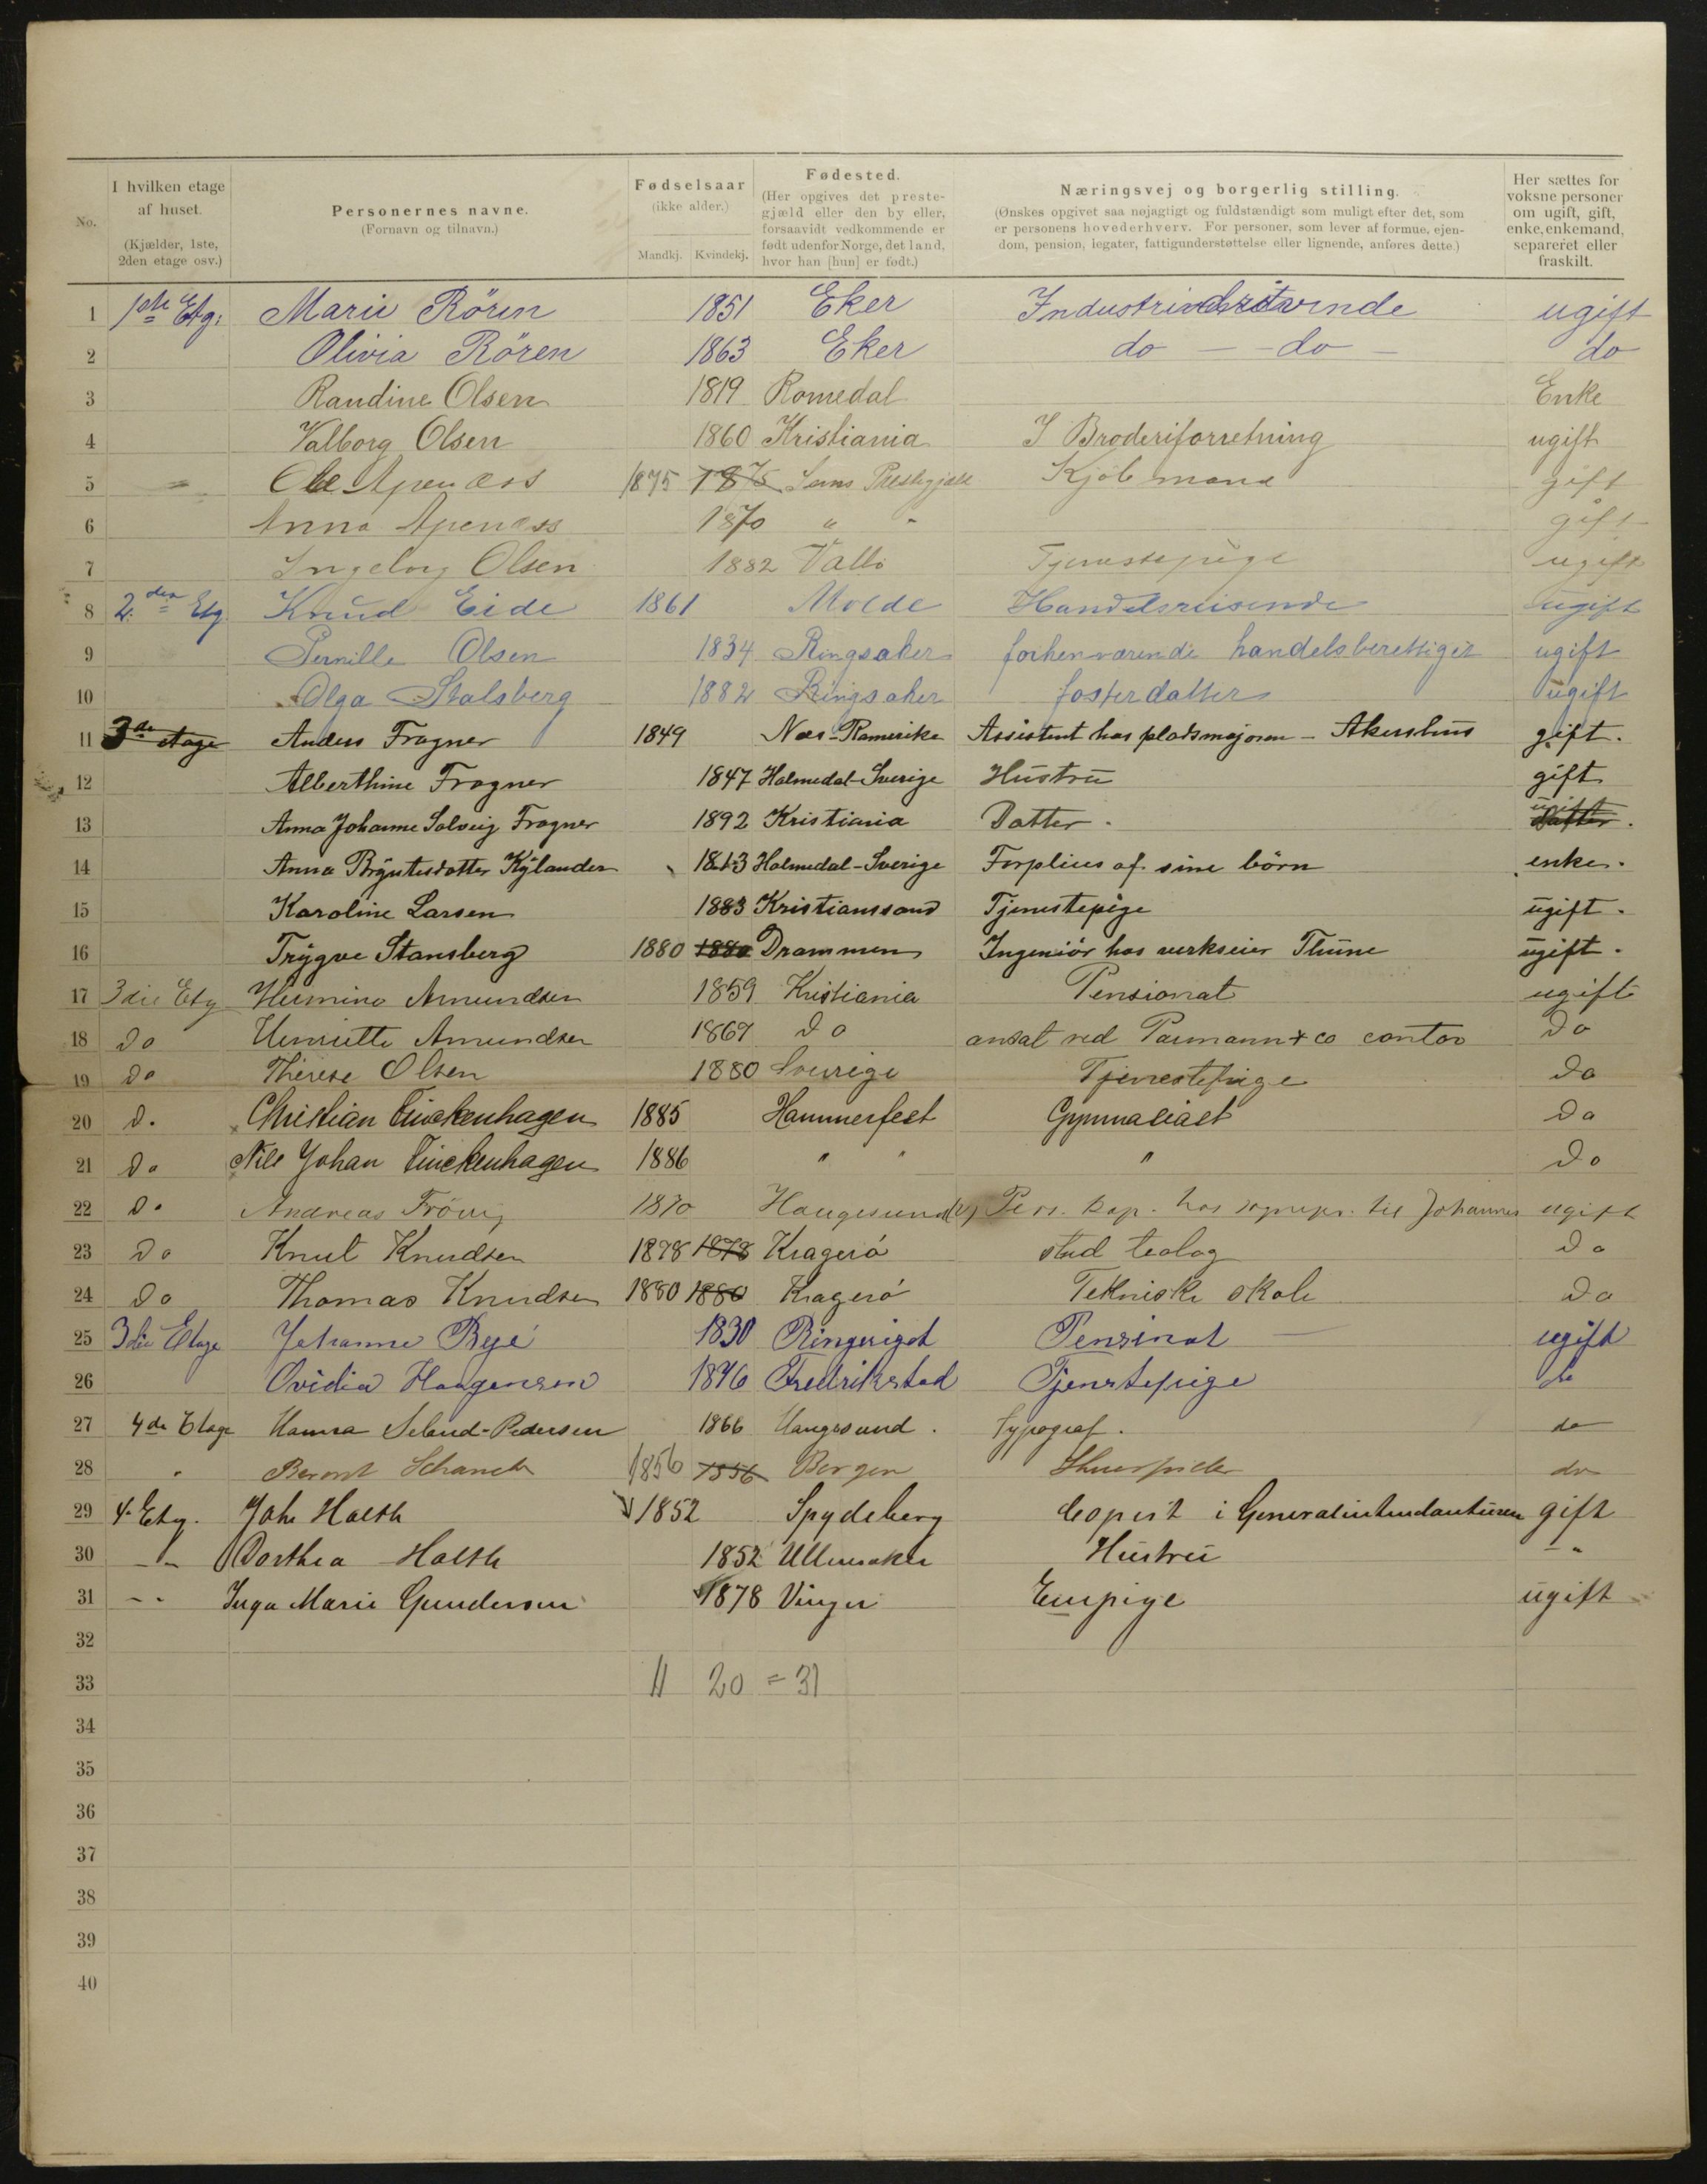 No. | I hvilken etage af huset. (Kjælder, 1ste, 2den etage osv.) | Personernes navne. (Fornavn og tilnavn.) | Fødselsaar (ikke alder.) Mandkj. Kvindekj. | Fødested. (Her opgives det prestegjæld eller den by eller, forsaavidt vedkommende er født udenfor Norge, det land, hvor han [hun] er født.) | Næringsvej og borgerlig stilling. (Ønskes opgivet saa nøjagtigt og fuldstændigt som muligt efter det, som er personens hovederhverv. For personer, som lever af formue, ejendom, pension, legater, fattigunderstøttelse eller lignende, anføres dette.) | Her sættes for voksne personer om ugift, gift, enke, enkemand, separeret eller fraskilt.
1 1ste Etg. Marie Rören 1851 Eker ugift
2 Olivia Rören 1863 Eker do — do — do
3 Randine Olsen 1819 Romedal Enke
4 Valborg Olsen 1860 Kristiania I Broderiforretning ugift
5 Ole Apenæss 1875 1875 Sems Prestegjæld Kjöbmand gift
6 Anna Apenæss 1870 " " gift
7 Ingeborg Olsen 1882 Vallö Tjenestepige ugift
8 2den Etg. Knud Eide 1861 Molde Handelsreisende ugift
9 Pernille Olsen 1834 Ringsaker forhenværende handelsberettiget ugift
10 Olga Stalsberg 1882 Ringsaker fosterdatter ugift
11 3die etage Anders Fragner 1849 Næs-Romerike Assistent hos pladsmajoren - Akershus gift.
12 Alberthine Fragner 1847 Holmedal-Sverige Hustru gift
13 Anna Johanne Solveig Fragner 1892 Kristiania Datter. ugift Datter.
14 Anna Bryntesdatter Kylander 1813 Holmedal-Sverige Forpleies af sine börn enke.
15 Karoline Larsen 1883 Kristianssand Tjenestepige ugift.
16 Trygve Stansberg 1880 1880 Drammen Ingeniör hos verkseier Thune ugift.
17 3die Etg Hermine Amundsen 1859 Kristiania Pensionat ugift
18 Do Henriette Amundsen 1867 Do ansat ved Parmann + co contor Do
19 Do Therese Olsen 1880 Sverige Tjenestepige Do
20 D. Christian Finckenhagen 1885 Hammerfest Gymnasiast Do
21 Do Nils Johan Finckenhagen 1886 " " " Do
22 D. Andreas Frövig 1870 Haugesund(?) Pers. kap. hos sognepr. til Johannes ugift
23 Do Knut Knudsen 1878 1878 Kragerö stud teolog Do
24 Do Thomas Knudsen 1880 1880 Kragerö Tekniske skole Do
25 3die Etage Johanne Bejé 1830 Ringeriget Pensinat — ugift
26 Ovidia Haagensen 1876 Fredrikstad Tjenstepige do
27 4de Etage Hanna Seland-Pedersen 1866 Haugesund. typograf. do
28 " Berent Schanch 1856 1856 Bergen Skuespiller do
29 4. Etg. Johs Holth 1852 Spydeberg Copist i Generalintendanturen gift
30 - " - Dorthea Holth 1852 Ullensaker Hustru - "
31 - " - Inga Marie Gundersen 1878 Vinger Enepige ugift
32
33 11 20 = 31
34
35
36
37
38
39
40